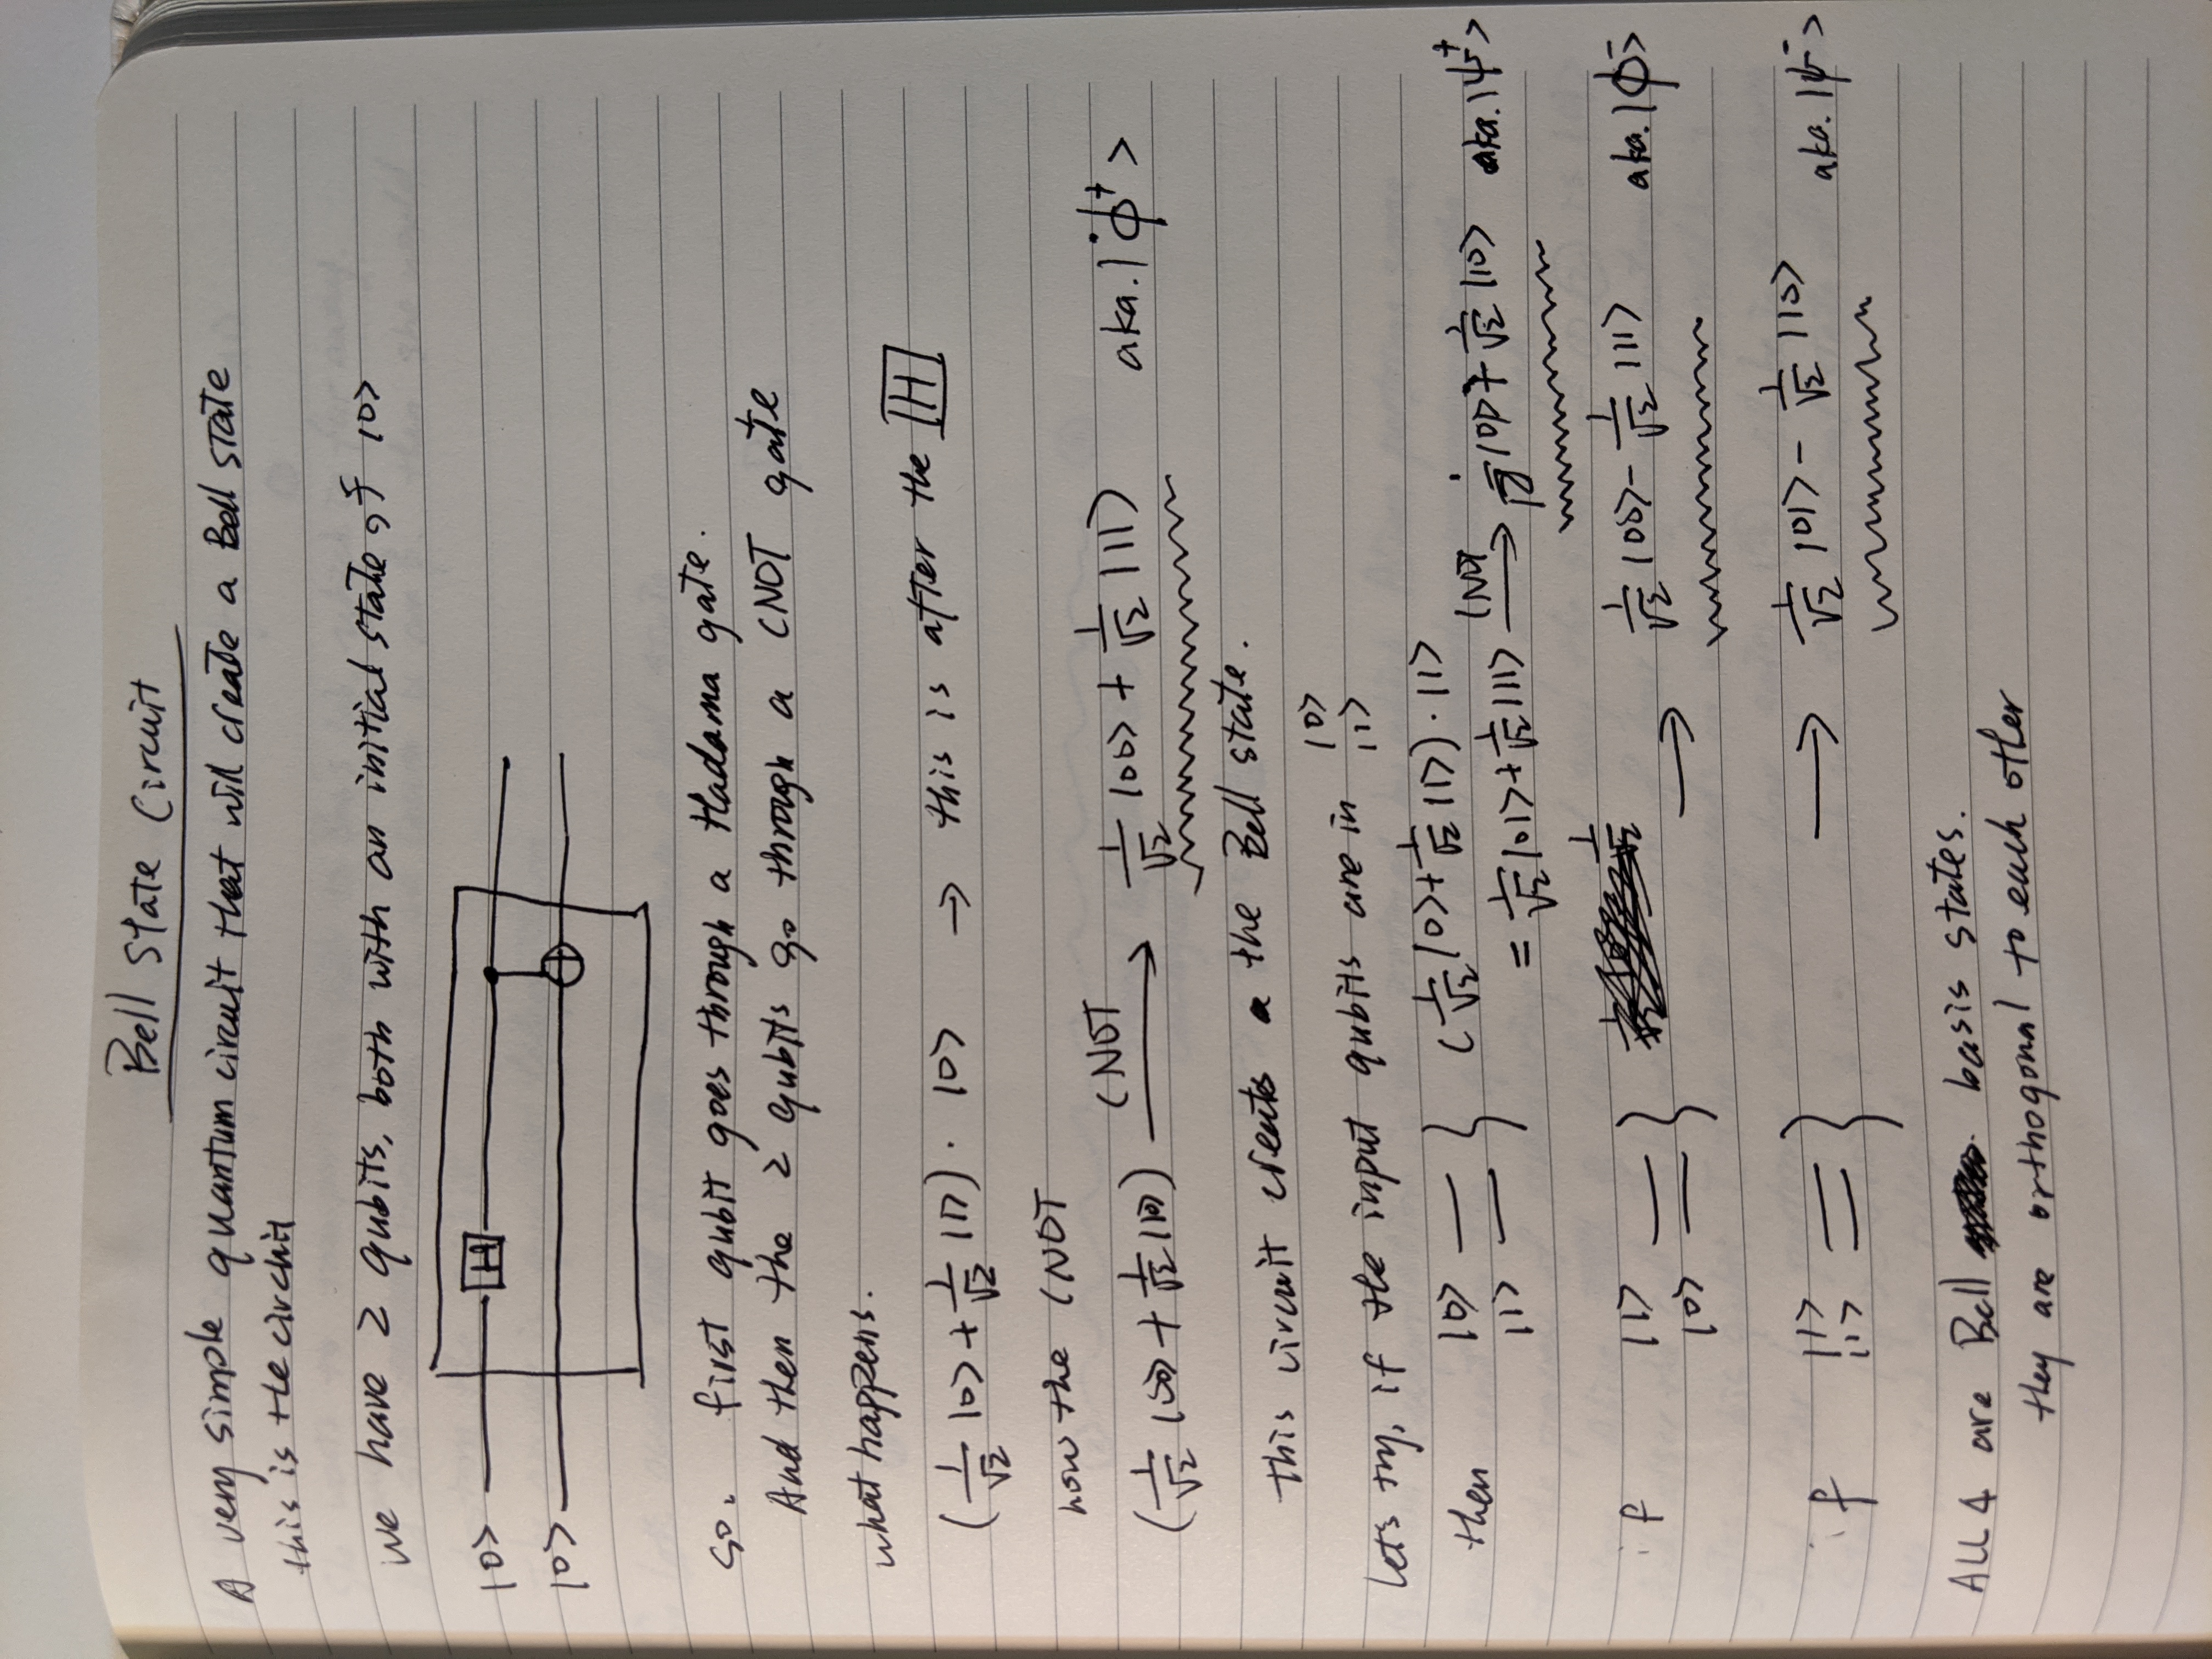 Bell State Circuit
A very simple quantum circuit that will create a Bell state
this is the circuit
we have 2 qubits, both with an initial state of |0>
|0> H
|0>
so. first qubit goes through a Hadama gate.
And then the 2 qubits go through a CNOT gate
what happens.
(1/√2 |0> + 1/√2 |1>) · |0> → this is after the H
now the CNOT
(1/√2 |00> + 1/√2 |10>) CNOT → 1/√2 |00> + 1/√2 |11> aka. |ϕ⁺>
this circuit creates a the Bell state.
lets try, if the input qubits are in |0>
|1>
then |0> } (1/√2 |0> + 1/√2 |1>) · |1>
|1> = 1/√2 |01> + 1/√2 |11> CNOT → 1/√2 |01> + 1/√2 |10> aka. |ψ⁺>
if |1> } → 1/√2 |00> - 1/√2 |11> aka. |ϕ⁻>
|0>
if |1> } → 1/√2 |01> - 1/√2 |10> aka. |ψ⁻>
|1>
ALL 4 are Bell basis states.
they are orthogonal to each other